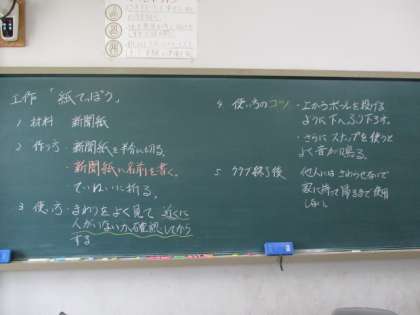 工作 「紙てっぽう」
1 材料 新聞紙
2 作り方・新聞紙を半分に切る。
・新聞紙に名前を書く。
ていねいに折る。
3 使い方・まわりをよく見て 近くに
人がいないか確認してから
する
4 使い方のコツ ・上からボールを投げる
ように下へふり下ろす。
・さらにスナップを使うと
よく音が鳴る。
5 クラブ終了後 他人にはさわらせないで
家に持って帰るまで使用
しない。